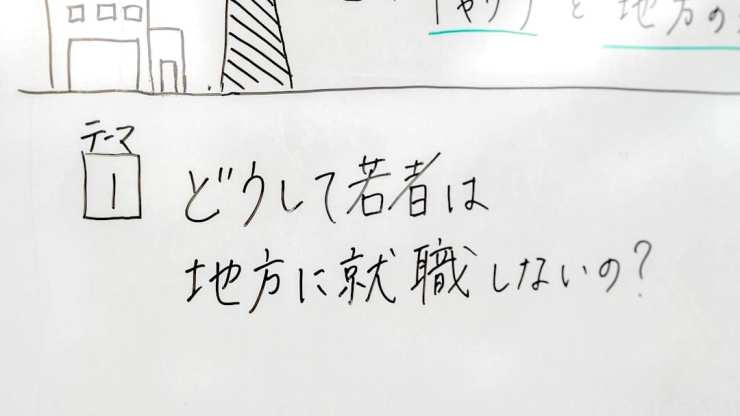 と地方の
テーマ
1
どうして若者は
地方に就職しないの？